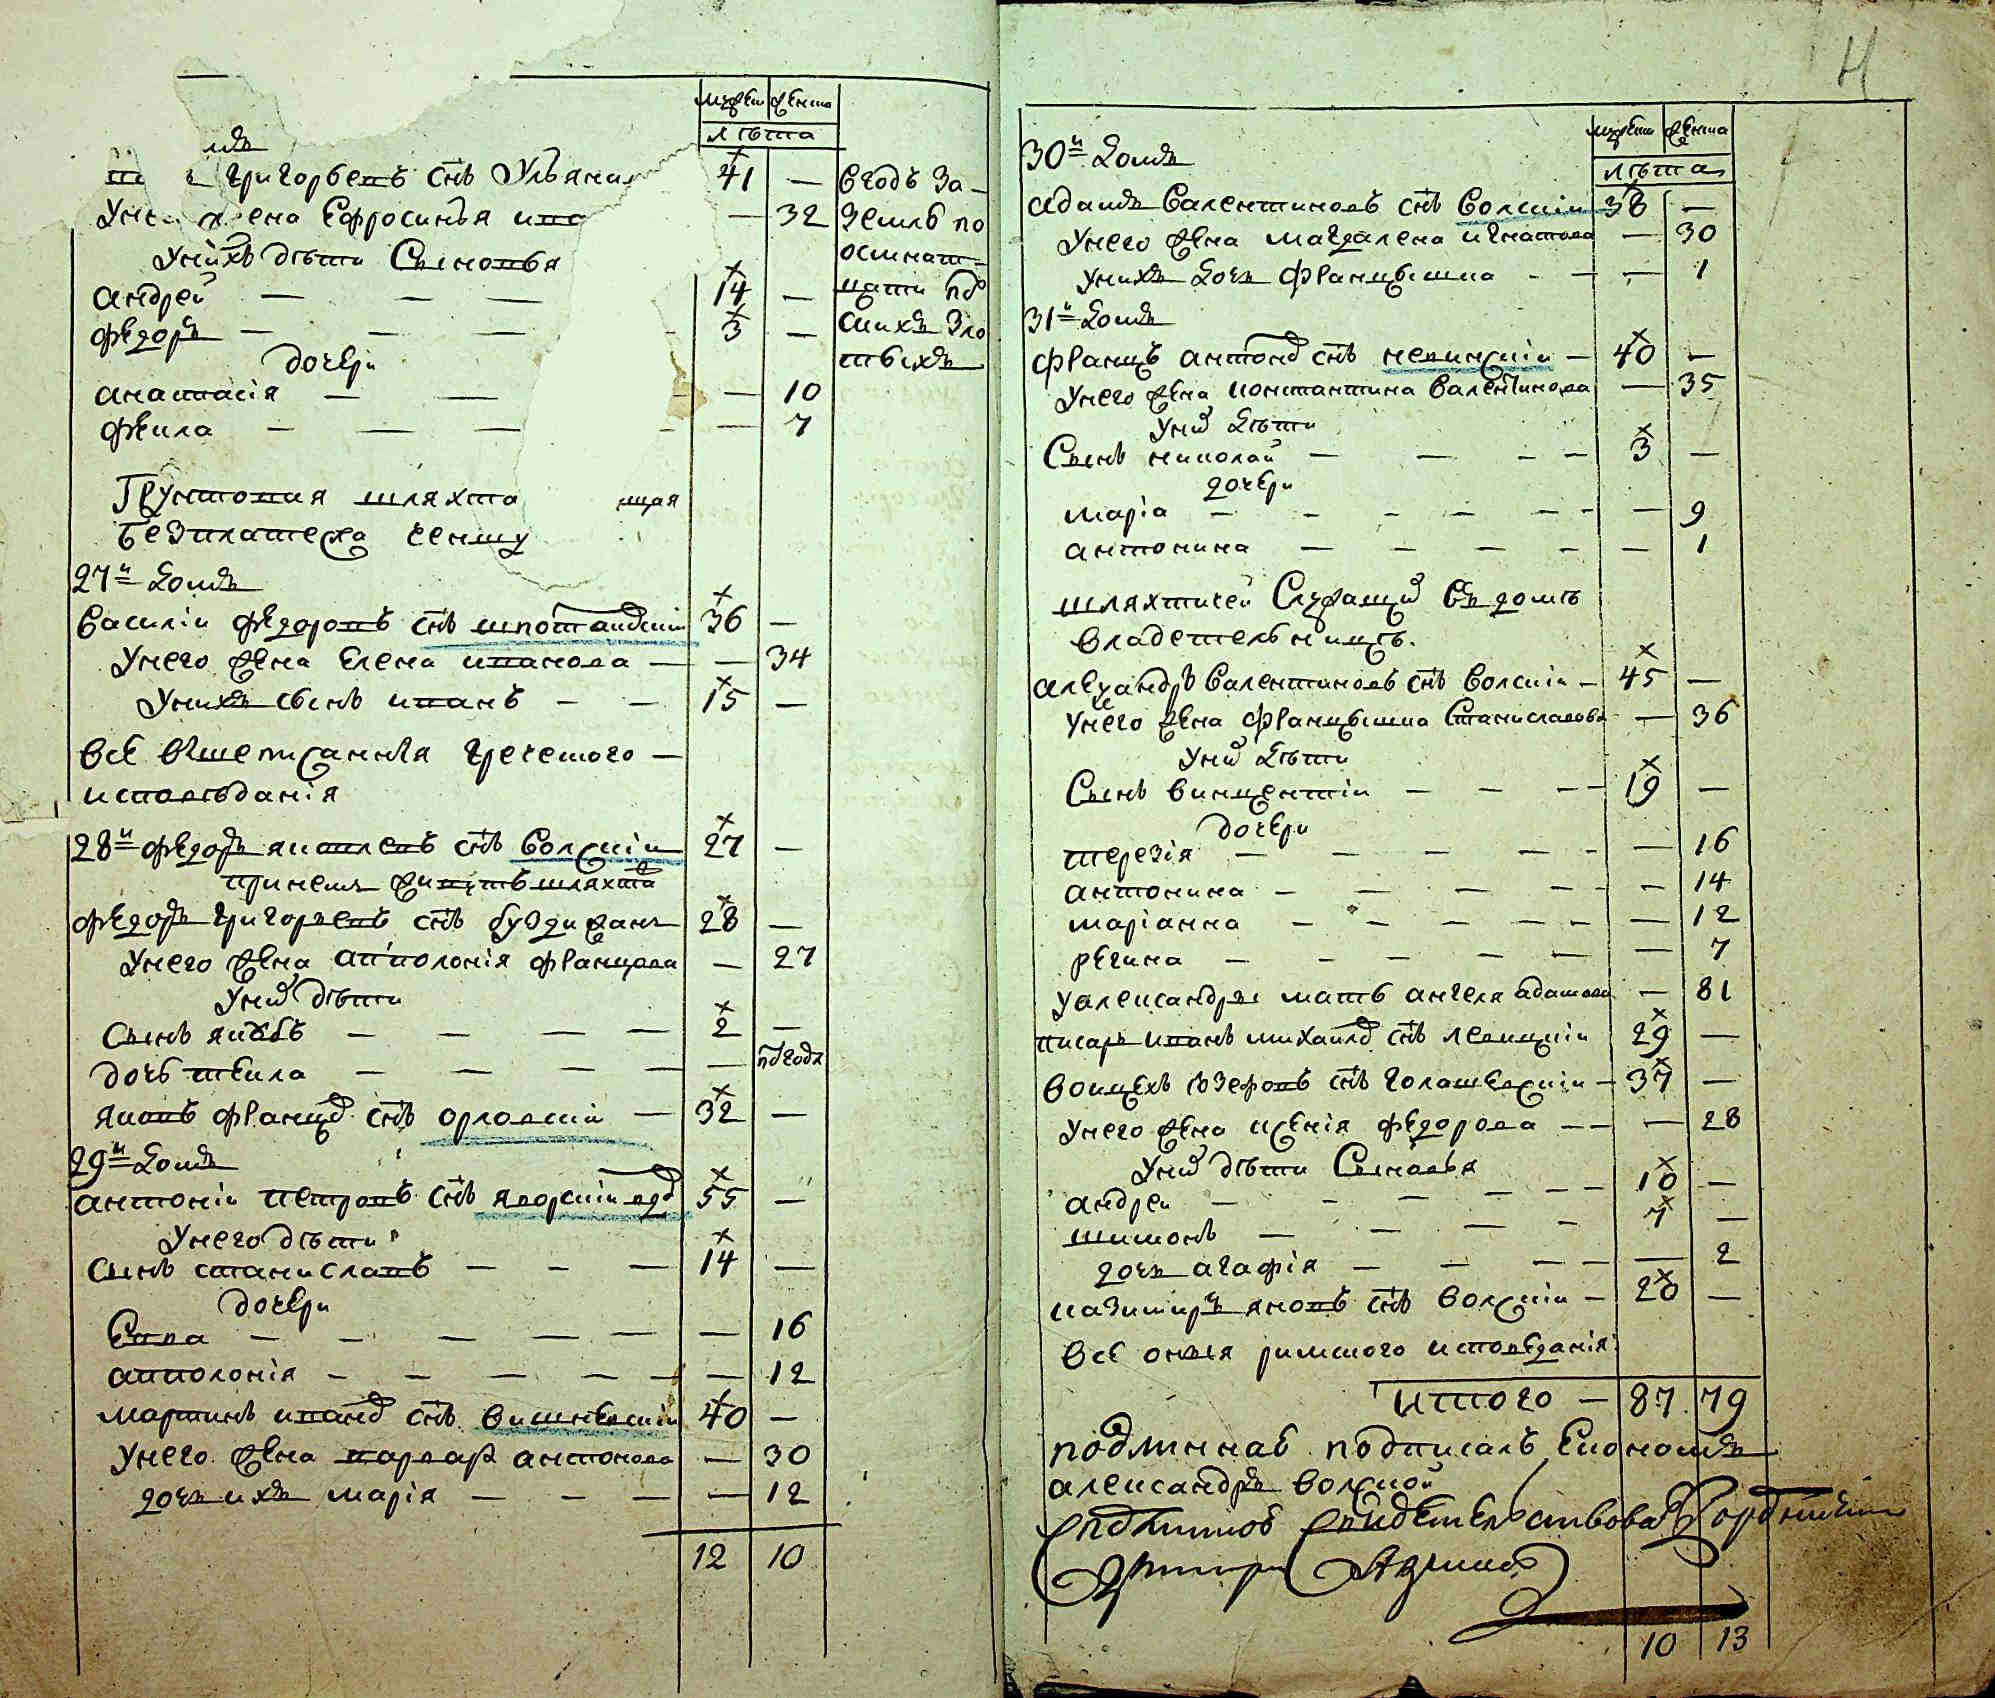 мужеск женска
лѣта
мъ
григорьевъ снъ Ульяни 41 — вгодъ за-
Унег жена Ефросинья ива — 32 землю по
Унихъ дѣти Сыновья осмнат-
андрей — — — 14 — цати рб
федоръ — — — 3 — скихъ зло
дочери тыхъ
анастасія — — — 10
фекила — — — — — 7
Грунтовая шляхта щая
безплатежа чемшу
27й домъ
василіи федоровъ снъ шпотанскіи 36 —
Унего жена Елена иванова — — 34
Унихъ сынъ иванъ — — 15 —
всѣ вышеписанныя греческого —
исповѣданія
28й федоръ яковлевъ снъ волскіи 27 —
принемъ живутъ шляхта
федоръ григорьевъ снъ буздиганъ 28 —
Унего жена апполонія францова — 27
Унихъ дѣти
Сынъ якубъ — — — — 2 —
дочь текила — — — — — полгода
яковъ францов снъ орловскіи — 32 —
29й домъ
антоніи петровъ снъ яворскіи вдов 55 —
Унего дѣти
сынъ станиславъ — — — 14 —
дочери
Евва — — — — — — 16
апполонія — — — — — — 12
мартинъ иванов снъ вишневскіи 40 —
Унего жена варвара антонова — 30
дочь ихъ марія — — — — 12
12 10
мужеск женска
лѣта
30й домъ
адамъ валентиновъ снъ волскіи 38 —
Унего жена магдалена игнатова — 30
Унихъ дочь францышка - — — 1
31й домъ
францъ антонов снъ непинскіи — 40 —
Унего жена константина валентинова — 35
Уних дѣти
Сынъ николай — — - - 3 —
дочери
марія — - - — - - — 9
антонина — — - — - — 1
шляхтичей Служащих въ домѣ
владетельницѣ.
алеξандръ валентиновъ снъ волскіи — 45 —
Унего жена францышка Станиславова — 36
Уних дѣти
Сынъ винцентіи — — — - 19 —
дочери
терезія — — — — - — 16
антонина — — — — - - 14
маріанна — — — — - — 12
регина — — — — — — 7
Уалександры мать ангеля адамова — 81
писаръ иванъ михаилов снъ левицкіи 29 —
воицехъ юзефовъ снъ голашевскіи — 37 —
Унего жена ксенія федорова — — — 28
Уних дѣти Сыновья
андреи — — — — — - 10 —
шимонъ — — — - 7 —
дочь агафія — — — - — 2
казимиръ яновъ снъ волскіи — 20 —
всѣ оныя римского исповеданія:
итого — 87. 79
подлинной подписалъ Економъ
александръ волской
Сподлиннов Свидетелствовал
10 13